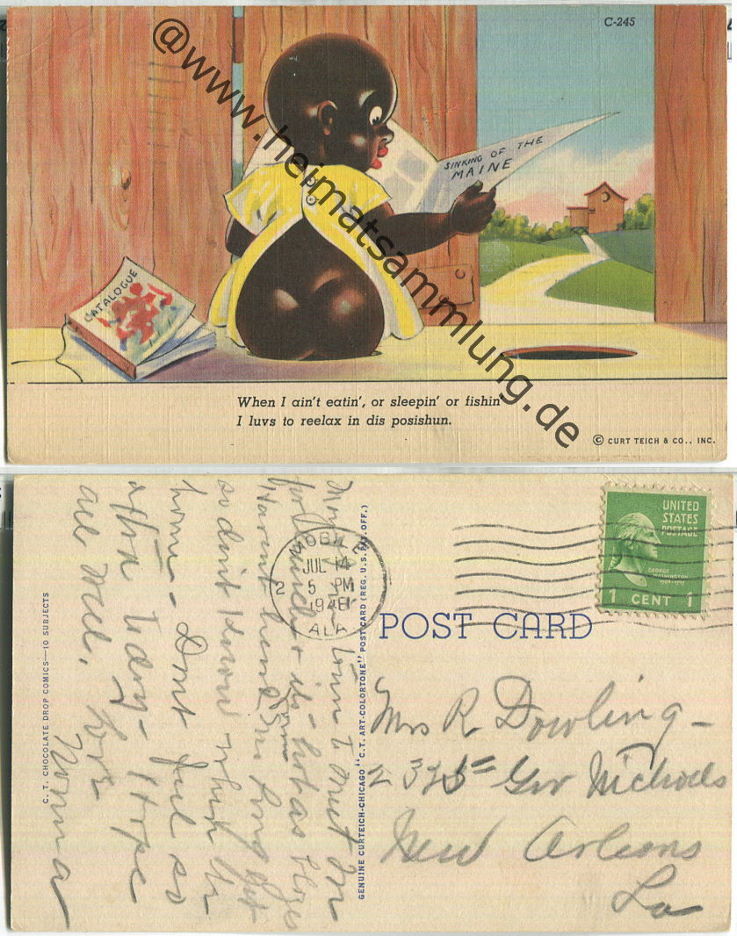 C-245
@www.heimatsammlung.de
SINKING OF THE
MAINE
CATALOGUE
When I ain't eatin', or sleepin' or fishin'
I luvs to reelax in dis posishun.
© CURT TEICH & CO., INC.
UNITED
STATES
POSTAGE
GEORGE
WASHINGTON
1 CENT 1
MOBILE
JUL 14
2 5 PM
1941
ALA
POST CARD
Mrs R. Dowling -
Gov Nicholls
New Orleans
La
GENUINE CURTEICH-CHICAGO "C.T. ART-COLORTONE" POST CARD (REG. U.S. PAT. OFF.)
town to meet
for lunch & its hot as
Haven't heard
so don't know when
home - Don't feel so
today - Hope
are well. Love
Norma
C. T. CHOCOLATE DROP COMICS—10 SUBJECTS